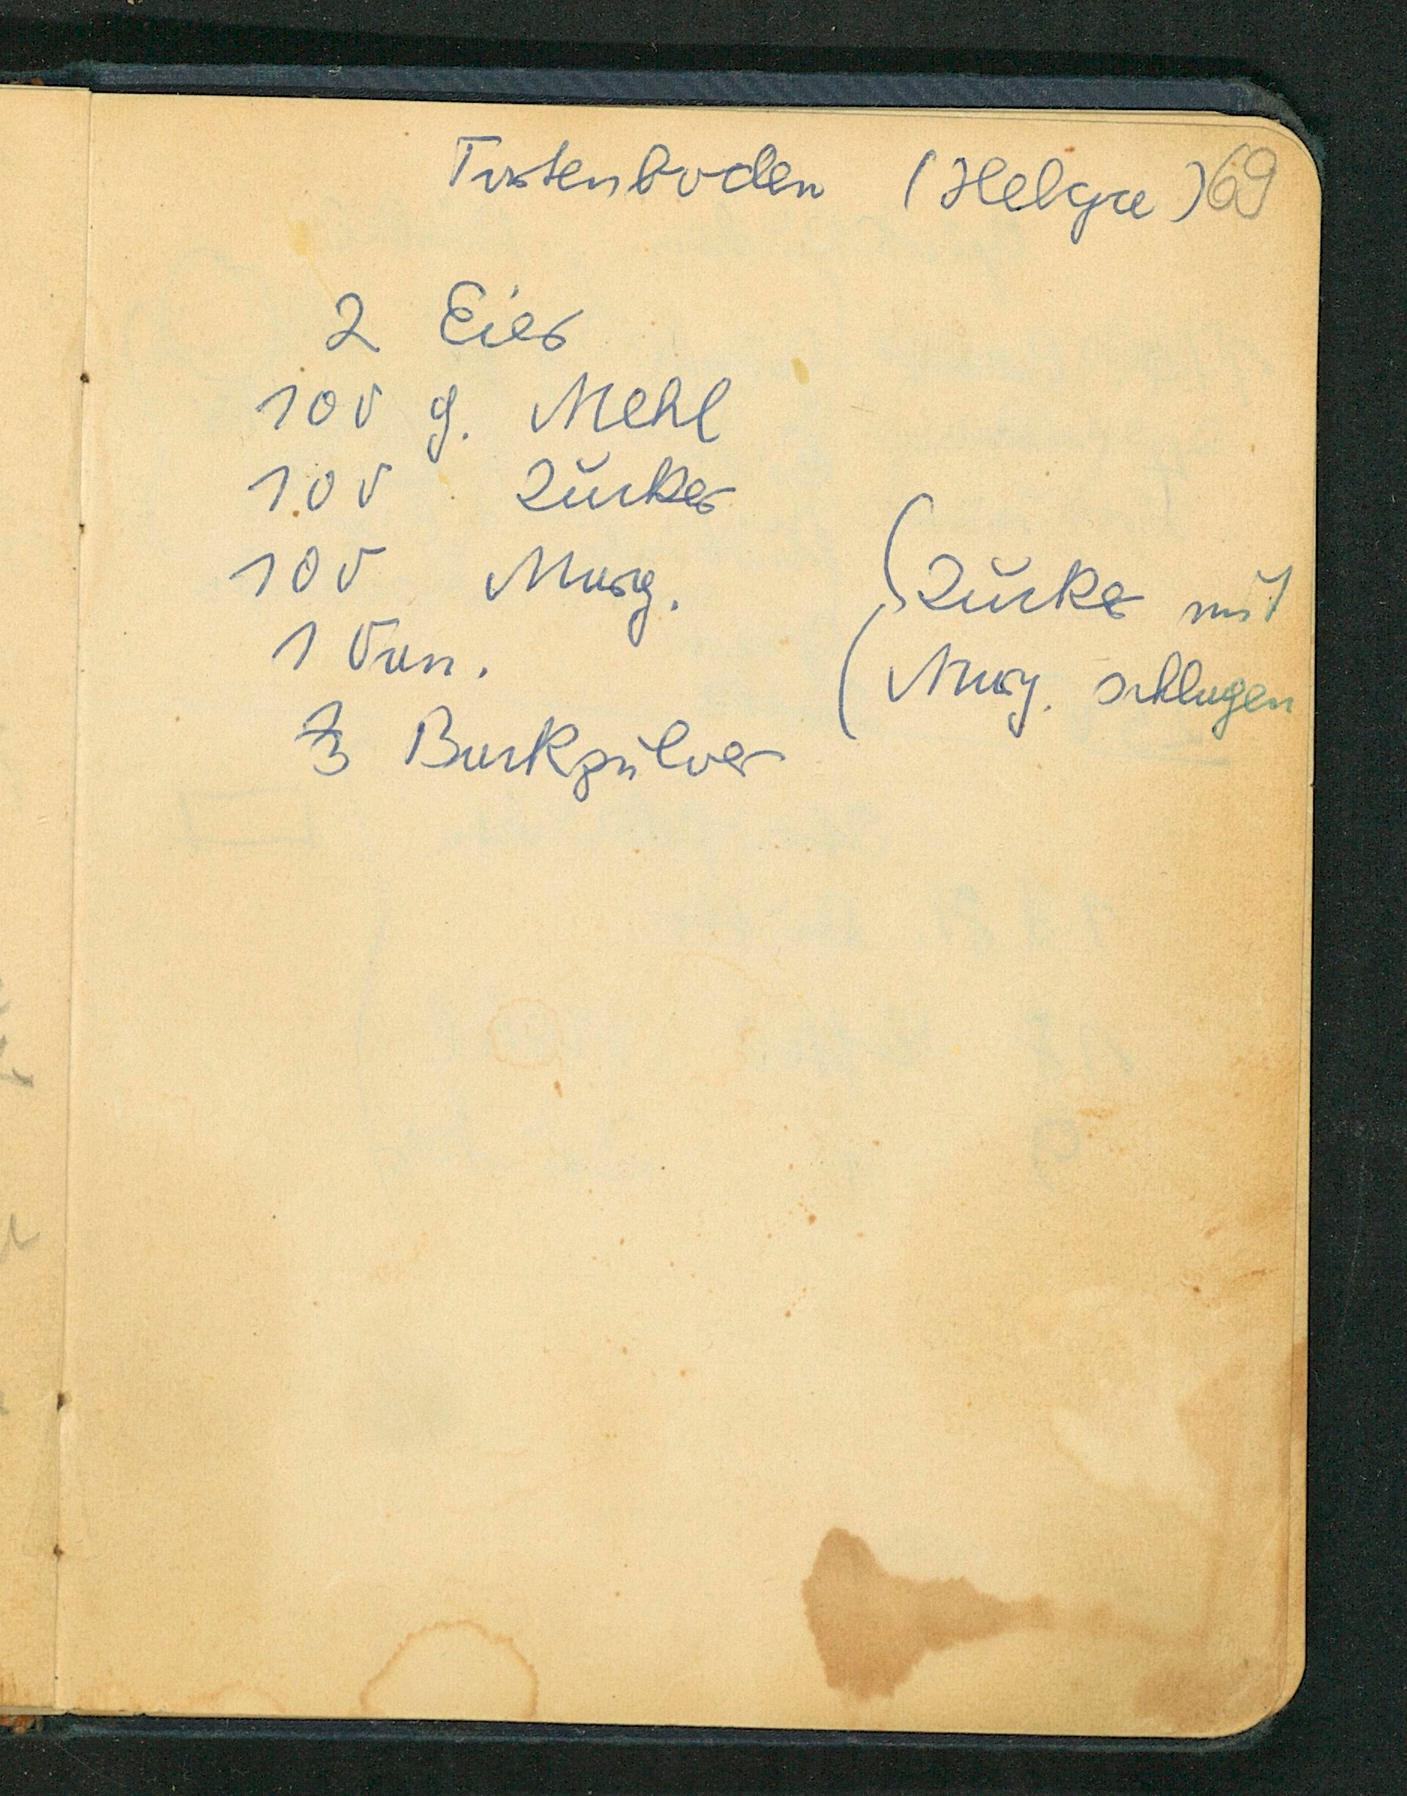 Tortenboden (Helga) 69
2 Eier
100 g. Mehl
100 Zucker
100 Marg.
1 Van.
Backpulver
(Zucker mit
(Marg. schlagen